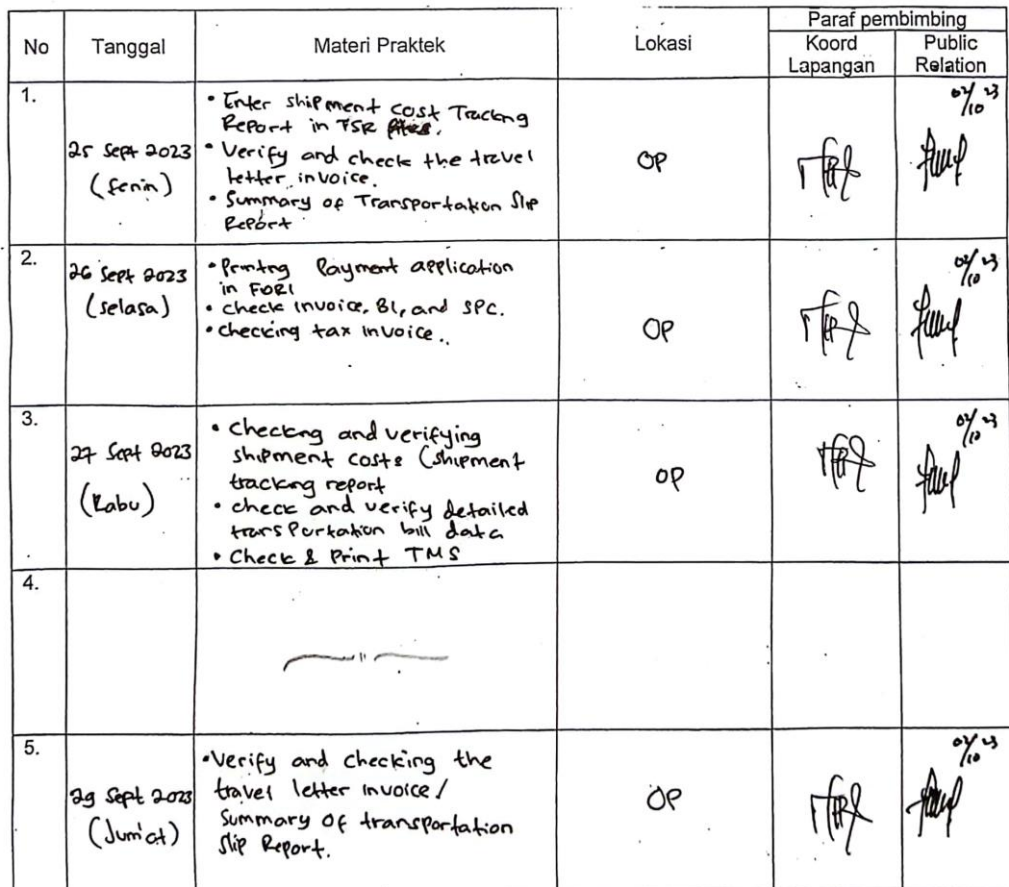 No Tanggal Materi Praktek Lokasi Paraf pembimbing
Koord Lapangan
Public Relation
1.
25 Sept 2023
(Senin)
• Enter shipment cost Tracking
Report in TSR
• Verify and check the travel
letter invoice.
• Summary of Transportation Slip
Report
OP
02/10 23
2.
26 Sept 2023
(Selasa)
• Printing Payment application
in FORI
• check invoice, BL, and SPC.
• checking tax invoice..
OP
02/10 23
3.
27 Sept 2023
(Rabu)
• Checking and verifying
shipment costs (shipment
tracking report
• check and verify detailed
transportation bill data
• Check & Print TMS
OP
02/10 23
4.
5.
29 Sept 2023
(Jum'at)
• Verify and checking the
travel letter invoice/
Summary of transportation
Slip Report.
OP
02/10 23